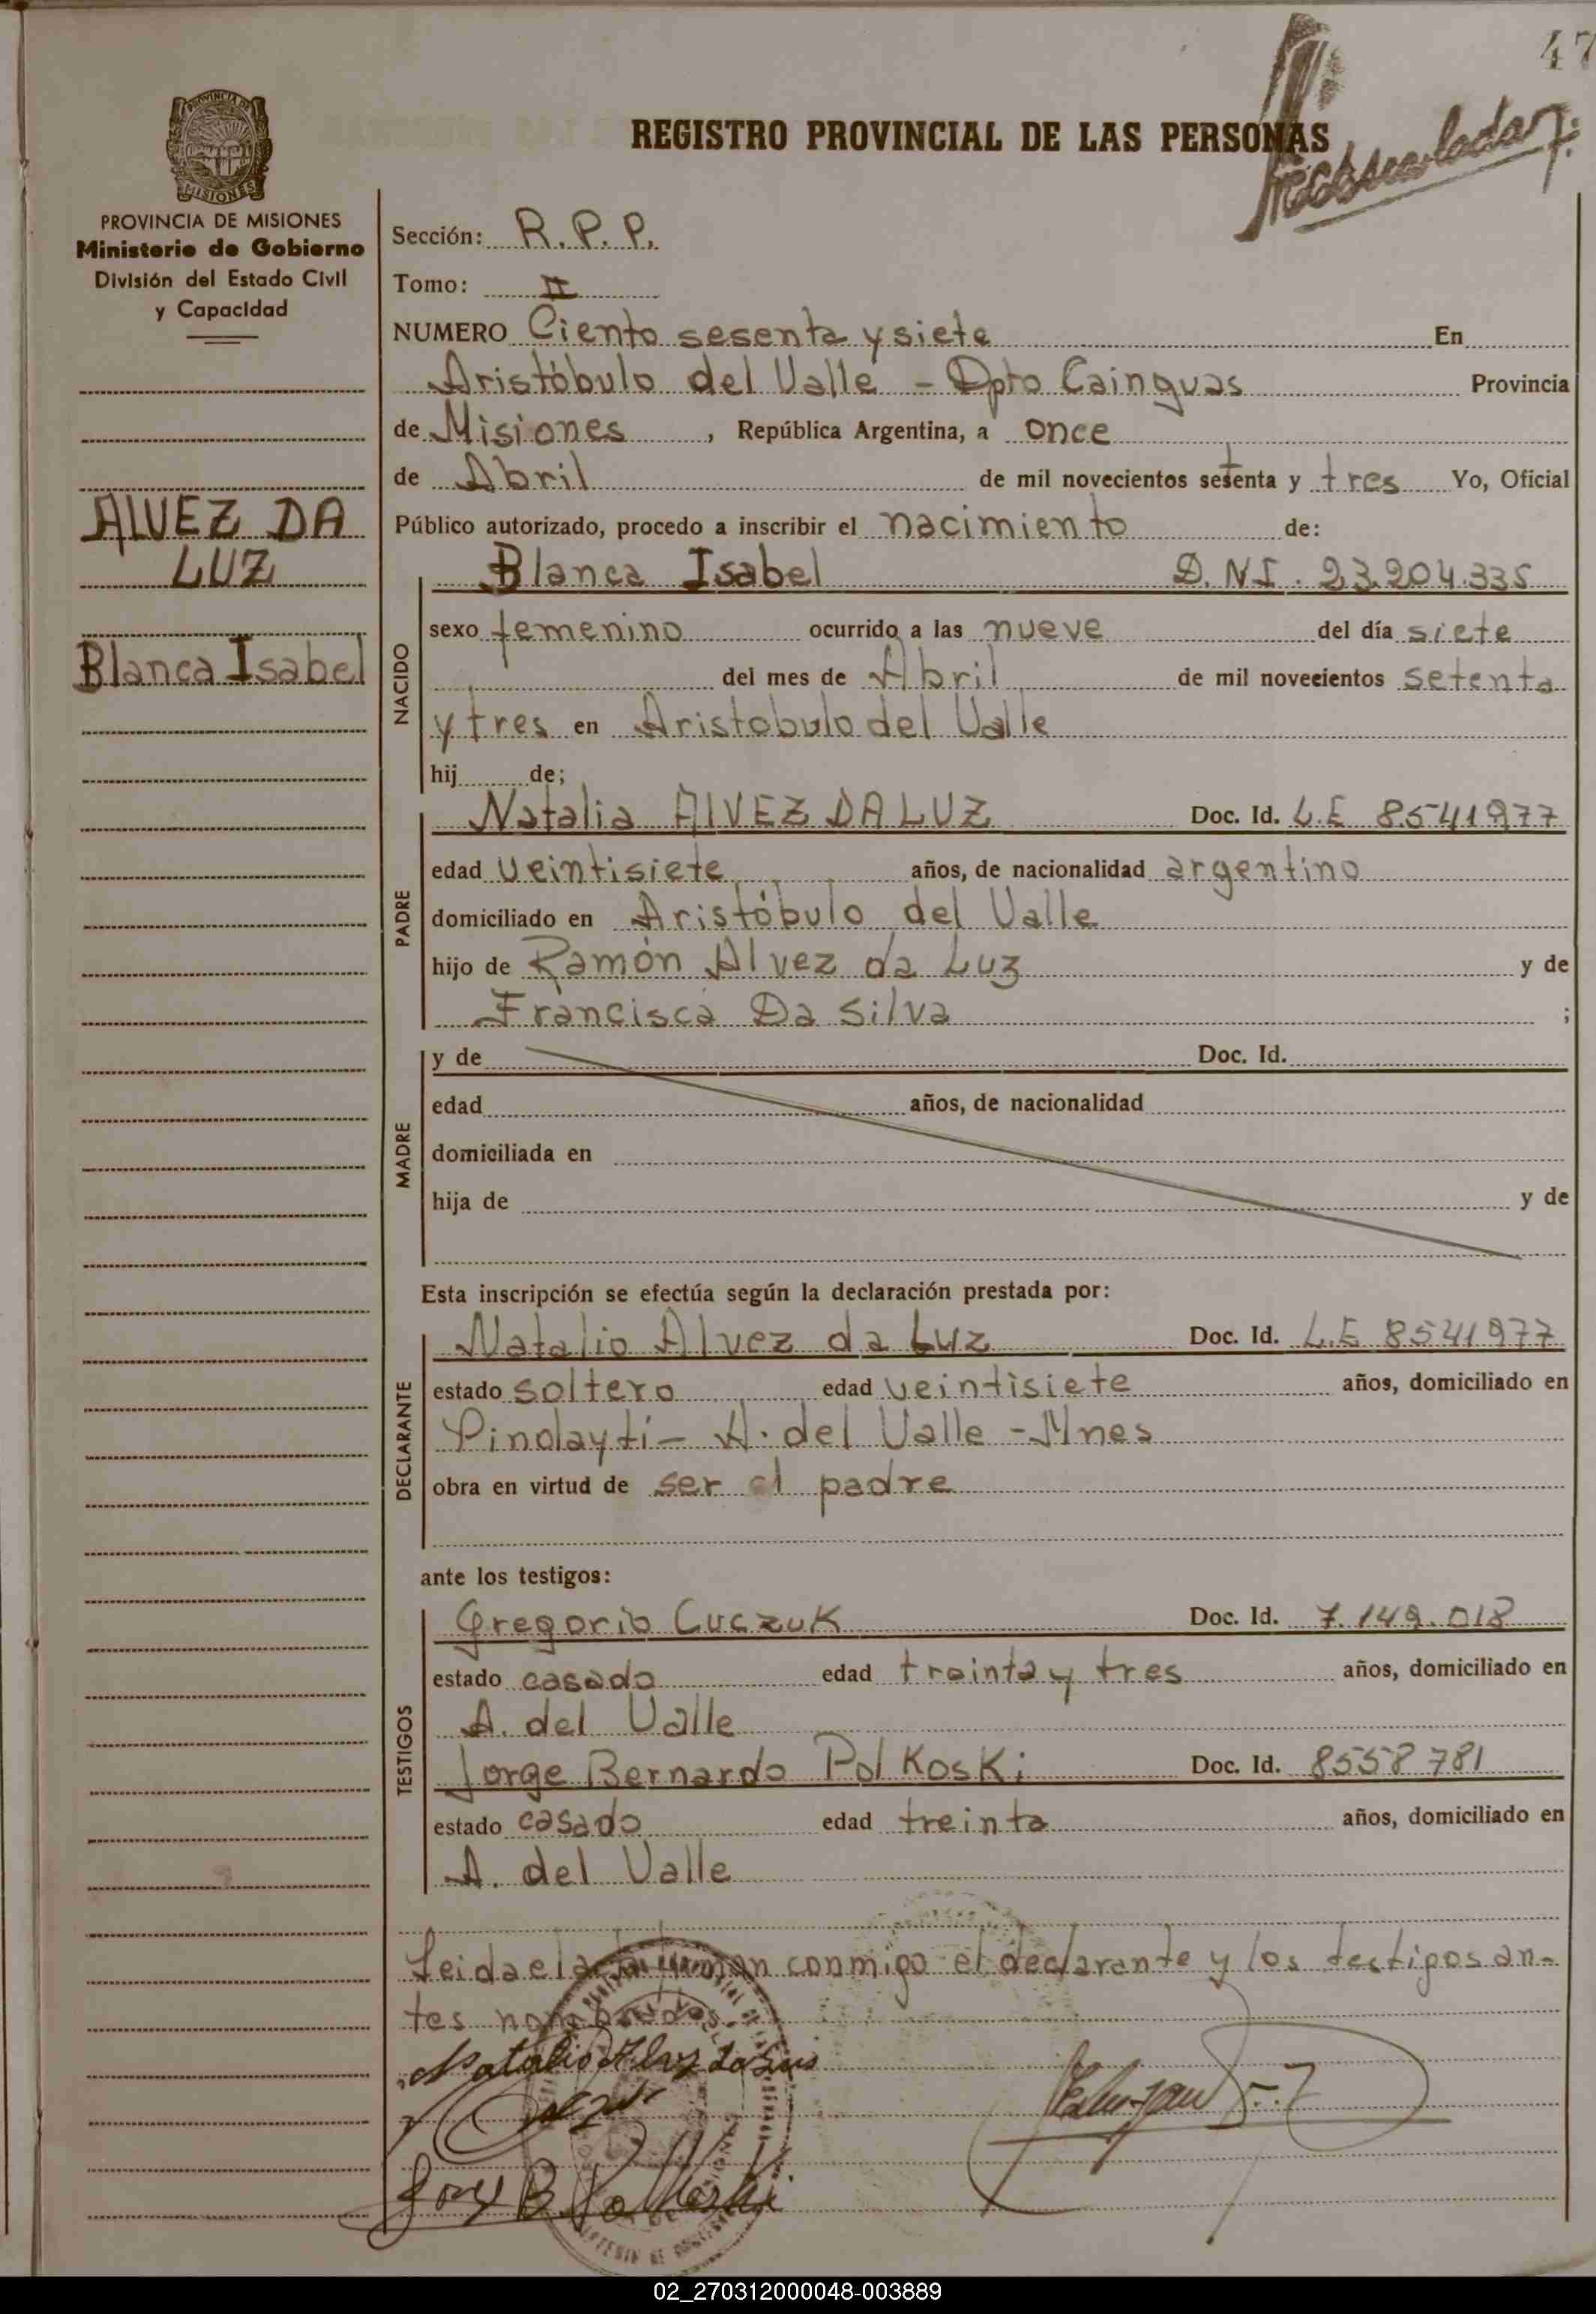 47
REGISTRO PROVINCIAL DE LAS PERSONAS
PROVINCIA DE MISIONES
Ministerio de Gobierno
División del Estado Civil
y Capacidad
ALVEZ DA
LUZ
Blanca Isabel
Sección: R.P.P.
Tomo: II
NUMERO Ciento sesenta y siete En
Aristóbulo del Valle - Dpto Cainguas Provincia
de Misiones, República Argentina, a once
de Abril de mil novecientos setenta y tres Yo, Oficial
Público autorizado, procedo a inscribir el nacimiento de:
Blanca Isabel D.N.I. 23.204.335
NACIDO
sexo femenino ocurrido a las nueve del día siete
del mes de Abril de mil novecientos setenta
y tres en Aristobulo del Valle
hij de;
PADRE
Natalia ALVEZ DA LUZ Doc. Id. L.E 8541977
edad veintisiete años, de nacionalidad argentino
domiciliado en Aristóbulo del Valle
hijo de Ramón Alvez da Luz y de
Francisca Da Silva ;
MADRE
y de Doc. Id.
edad años, de nacionalidad
domiciliada en
hija de y de
Esta inscripción se efectúa según la declaración prestada por:
DECLARANTE
Natalio Alvez da Luz Doc. Id. L.E 8541977
estado soltero edad veintisiete años, domiciliado en
Pindayti - A. del Valle - Mnes
obra en virtud de ser el padre
ante los testigos:
TESTIGOS
Gregorio Cuczuk Doc. Id. 7.149.018
estado casado edad treinta y tres años, domiciliado en
A. del Valle
Jorge Bernardo Polkoski Doc. Id. 8558781
estado casado edad treinta años, domiciliado en
A. del Valle
Leida el acta firman conmigo el declarante y los testigos an-
tes nombrados
02_270312000048-003889